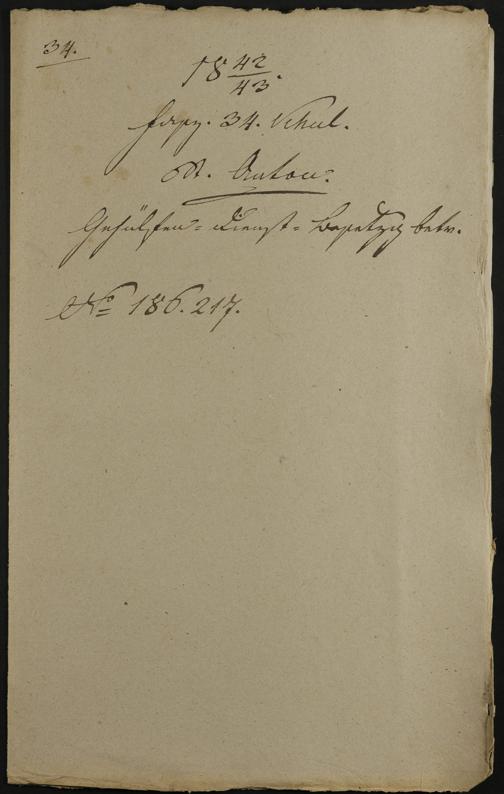 34.
18 42/43.
Fasz. 34. Schul.
St. Anton.
Gehülfen-Dienst-Besetzg betr.
No 186. 217.